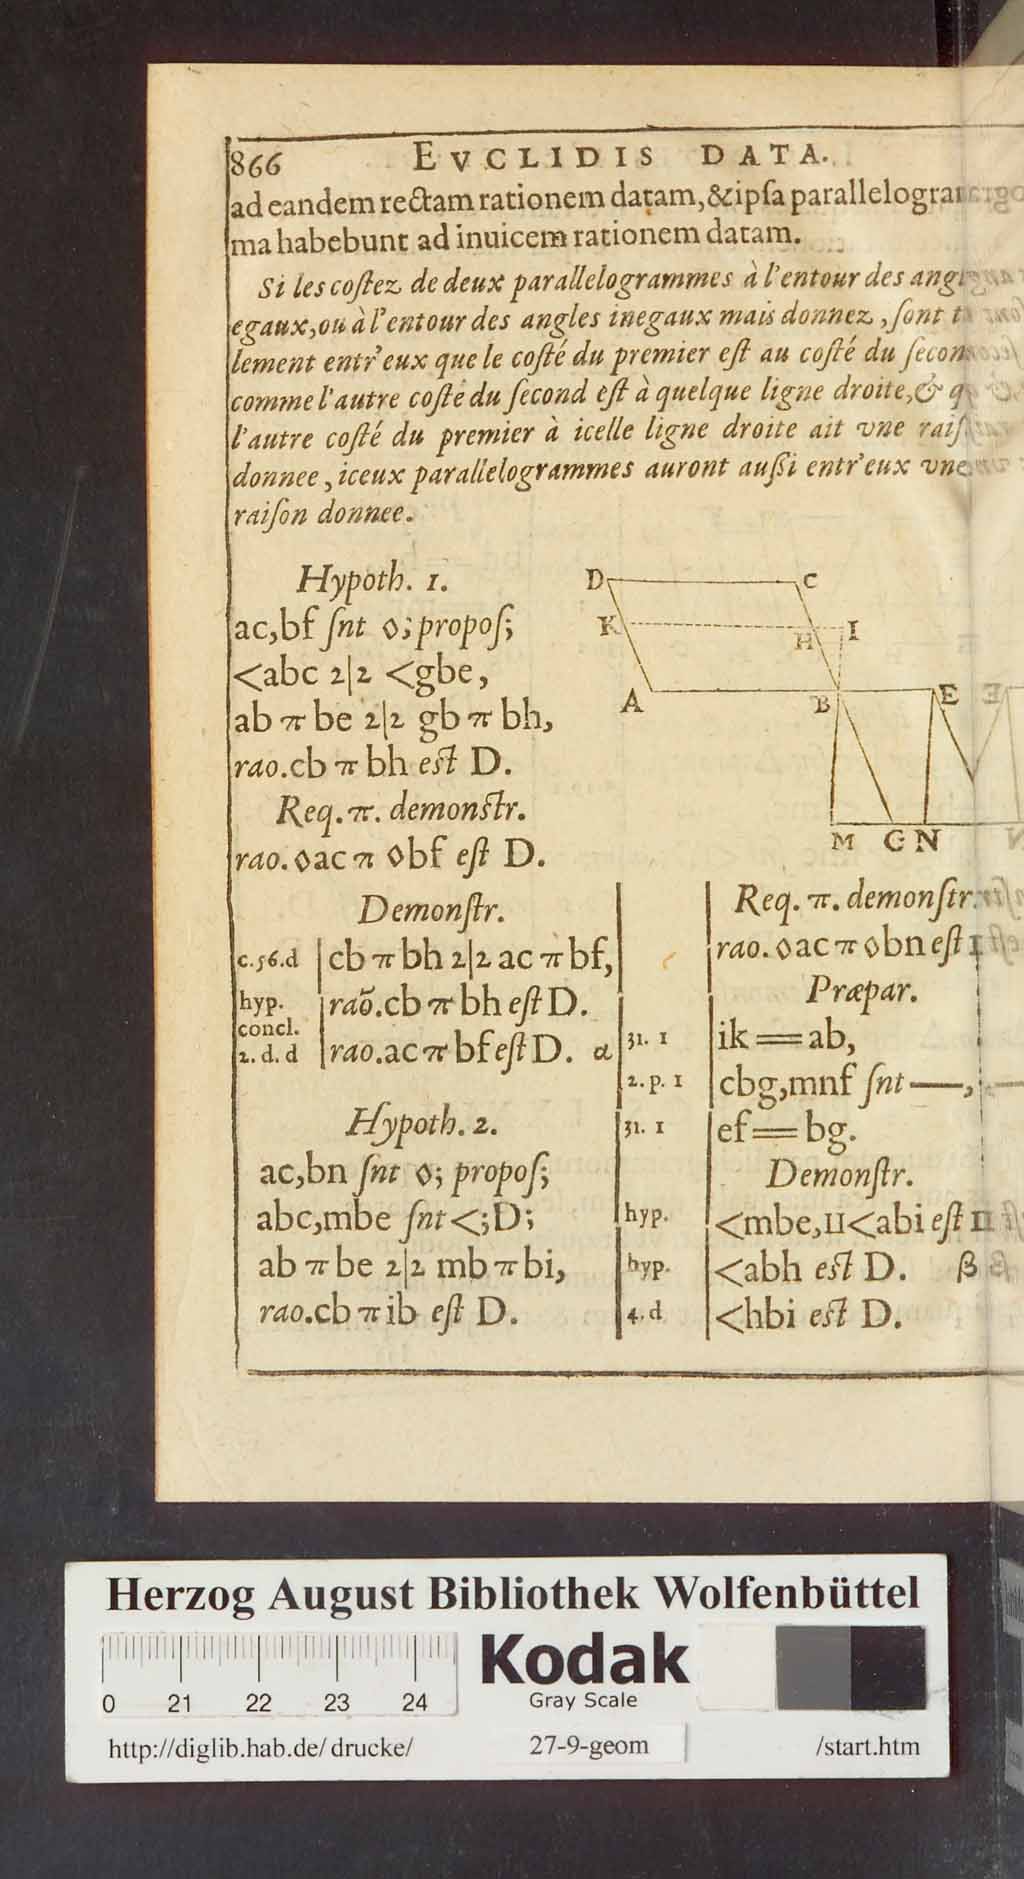 866 EVCLIDIS DATA.
ad eandem rectam rationem datam, & ipsa parallelogram
ma habebunt ad inuicem rationem datam.
Si les costez de deux parallelogrammes à l'entour des
egaux, ou à l'entour des angles inegaux mais donnez, sont
lement entr'eux que le costé du premier est au costé du
comme l'autre costé du second est à quelque ligne droite, &
l'autre costé du premier à icelle ligne droite ait vne
donnee, iceux parallelogrammes auront aussi entr'eux vne
raison donnee.
Hypoth. 1.
ac, bf snt ◊; propos;
<abc 2|2 <gbe,
ab π be 2|2 gb π bh,
rao. cb π bh est D.
Req. π. demonstr.
rao. ◊ac π ◊bf est D.
D C
K H I
A B E
M G N
Demonstr.
c. 56. d cb π bh 2|2 ac π bf,
hyp. raõ. cb π bh est D.
concl.
2. d. d rao. ac π bf est D. α
Hypoth. 2.
ac, bn snt ◊; propos;
abc, mbe snt <; D;
ab π be 2|2 mb π bi,
rao. cb π ib est D.
Req. π. demonstr.
rao. ◊ac π ◊bn est
Præpar.
31. 1 ik = ab,
2. p. 1 cbg, mnf snt —,
31. 1 ef = bg.
Demonstr.
hyp. <mbe, 11 <abi est
hyp. <abh est D. β
4. d <hbi est D.
Herzog August Bibliothek Wolfenbüttel
0 21 22 23 24
Kodak
Gray Scale
http://diglib.hab.de/ drucke/ 27-9-geom /start.htm